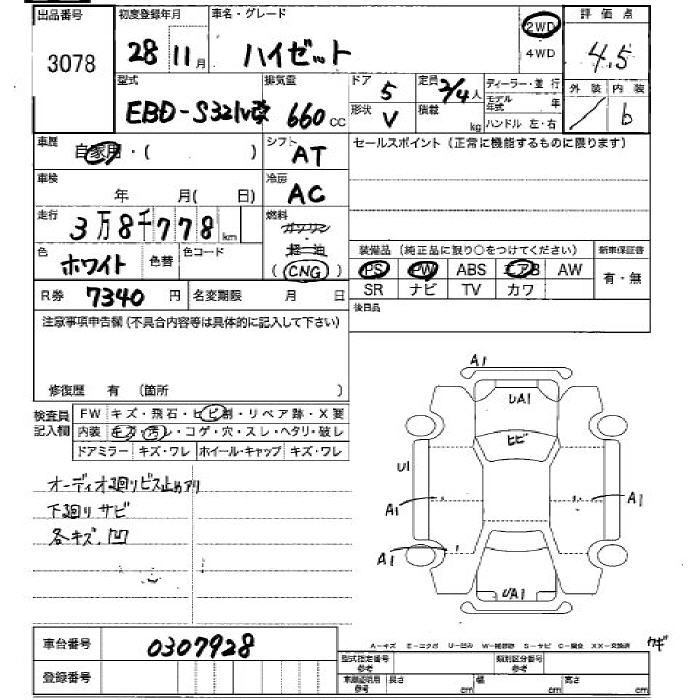 出品番号 初度登録年月 車名・グレード 2WD 評価点
3078 28 11月 ハイゼット 4WD 4.5
型式 排気量 ドア 5 定員 2/4人 ディーラー・並行 外装 内装
EBD-S321V改 660cc 形状 V 積載 kg モデル年式 年 b
ハンドル 左・右
車歴 自家用・( ) シフト AT セールスポイント(正常に機能するものに限ります)
車検 年 月( 日) 冷房 AC
走行 3万8千778km 燃料 ガソリン
軽油
色 ホワイト 色替 色コード (CNG) 装備品(純正品に限り○をつけてください) 新車保証書
PS PW ABS エアB AW 有・無
R券 7340円 名変期限 月 日 SR ナビ TV カワ
注意事項申告欄(不具合内容等は具体的に記入して下さい) 後日品
修復歴 有 (箇所 )
検査員記入欄 FW キズ・飛石・ヒビ割・リペア跡・X要
内装 コゲ・穴・スレ・ヘタリ・破レ
ドアミラー キズ・ワレ ホイール・キャップ キズ・ワレ
オーディオ廻りビス止めアリ
下廻りサビ
各キズ、凹
A1
UA1
ヒビ
U1
A1 A1
A1
UA1
車台番号 0307928
登録番号
A-キズ E-エクボ U-凹み W-補修跡 S-サビ C-腐食 XX-交換済
型式指定番号 参考 類別区分番号 参考
参考 長さ cm 幅 cm 高さ cm